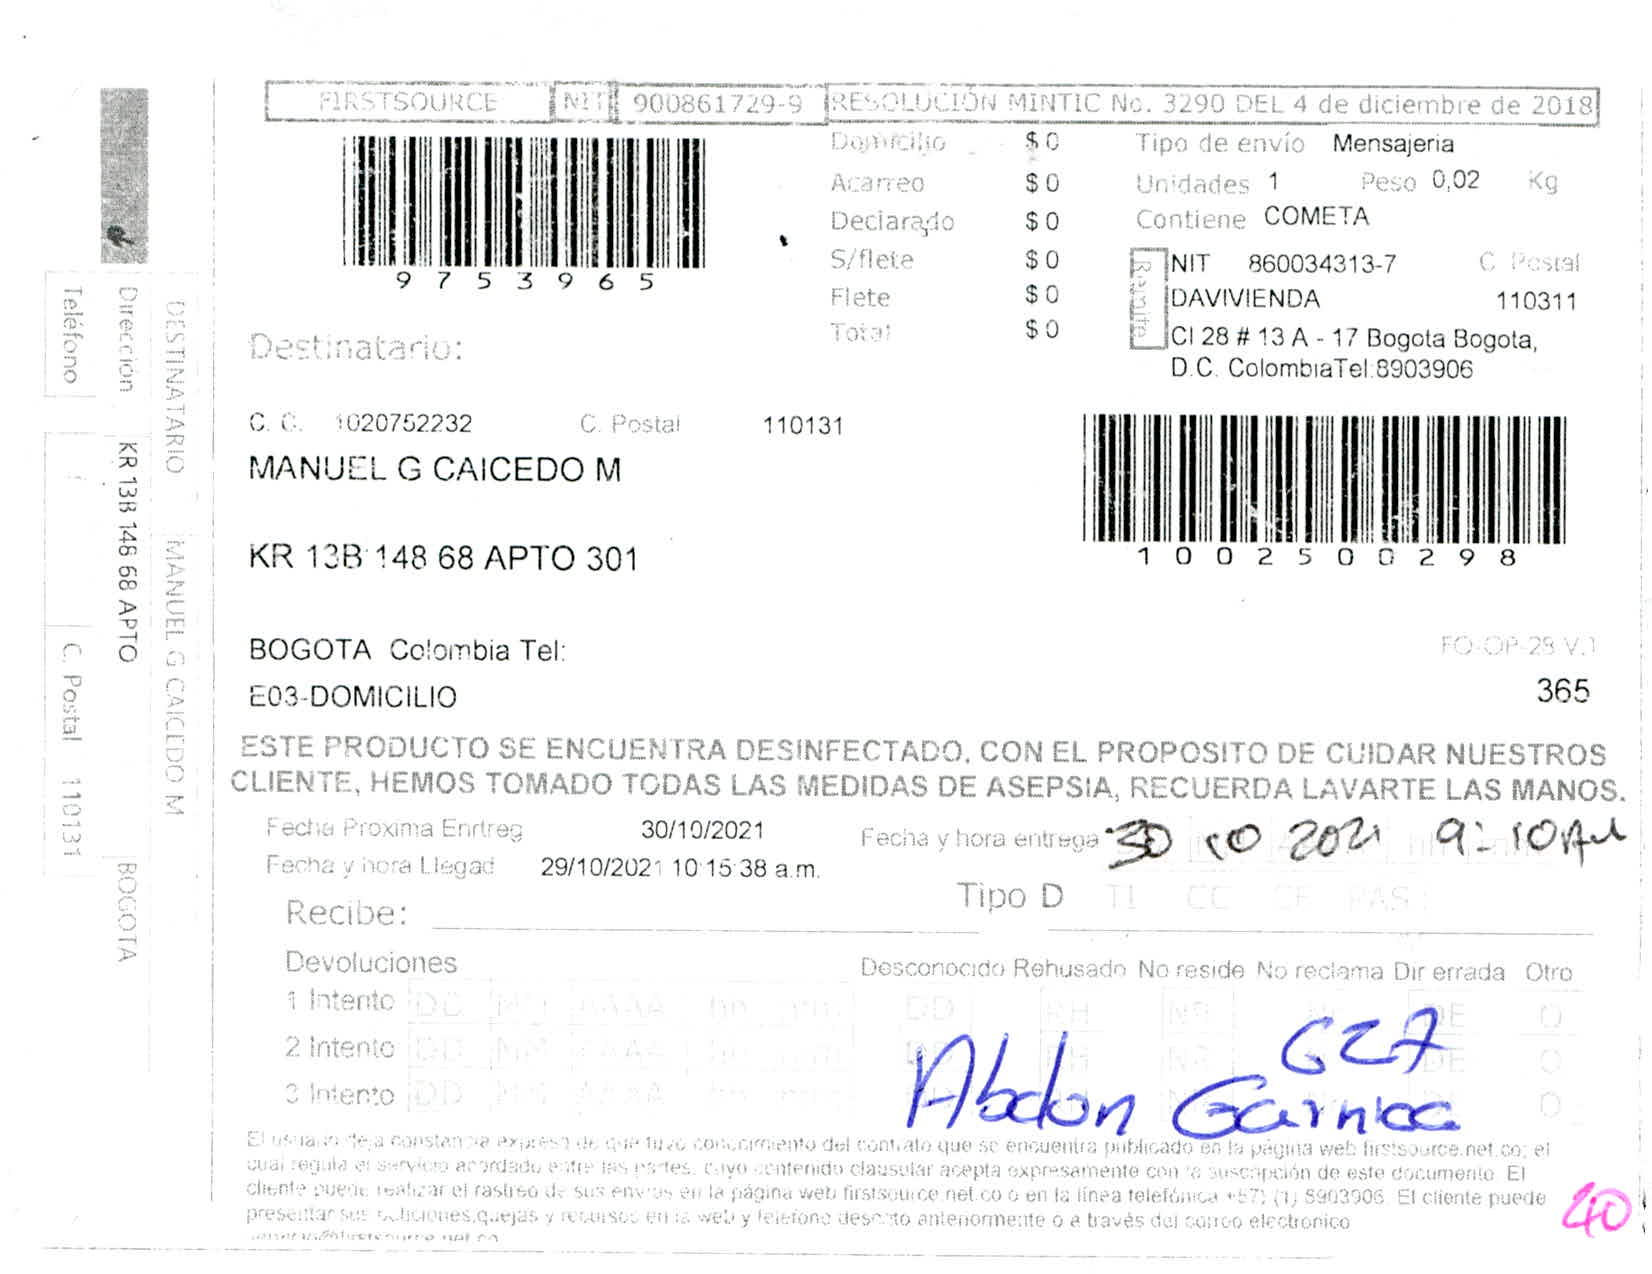 FIRSTSOURCE NIT 900861729-9 RESOLUCIÓN MINTIC No. 3290 DEL 4 de diciembre de 2018
9753965
Domicilio $ 0
Acarreo $ 0
Declarado $ 0
S/flete $ 0
Flete $ 0
Total $ 0
Tipo de envío Mensajeria
Unidades 1 Peso 0,02 Kg
Contiene COMETA
Remite
NIT 860034313-7 C Postal
DAVIVIENDA 110311
Cl 28 # 13 A - 17 Bogota Bogota,
D.C. ColombiaTel:8903906
Destinatario:
C. C. 1020752232 C. Postal 110131
MANUEL G CAICEDO M
KR 13B 148 68 APTO 301
1002500298
BOGOTA Colombia Tel:
E03-DOMICILIO
FO-OP-28 V.1
365
ESTE PRODUCTO SE ENCUENTRA DESINFECTADO, CON EL PROPOSITO DE CUIDAR NUESTROS
CLIENTE, HEMOS TOMADO TODAS LAS MEDIDAS DE ASEPSIA, RECUERDA LAVARTE LAS MANOS.
Fecha Proxima Enrtreg 30/10/2021
Fecha y hora entrega 30 10 2021 9:10AM
Fecha y hora Llegad 29/10/2021 10:15:38 a.m.
Tipo D TI CC CE PAS
Recibe:
Devoluciones Desconocido Rehusado No reside No reclama Dir errada Otro
1 Intento DD MM AAAA hh mm DD RH NR DE O
2 Intento DD MM AAAA hh mm RH NR DE O
3 Intento DD MM AAAA hh mm O
627
Abdon Garnica
El usuario deja constancia expresa de que tuvo conocimiento del contrato que se encuentra publicado en la página web firstsource.net.co; el
cual regula el servicio acordado entre las partes, cuyo contenido clausular acepta expresamente con la suscripción de este documento. El
cliente puede realizar el rastreo de sus envios en la página web firstsource.net.co o en la línea telefónica +57) (1) 8903906. El cliente puede
presentar sus peticiones,quejas y recursos en la web y telefono descrito anteriormente o a través del correo electronico
40
DESTINATARIO MANUEL G CAICEDO M
Dirección KR 13B 148 68 APTO BOGOTA
Teléfono C. Postal 110131